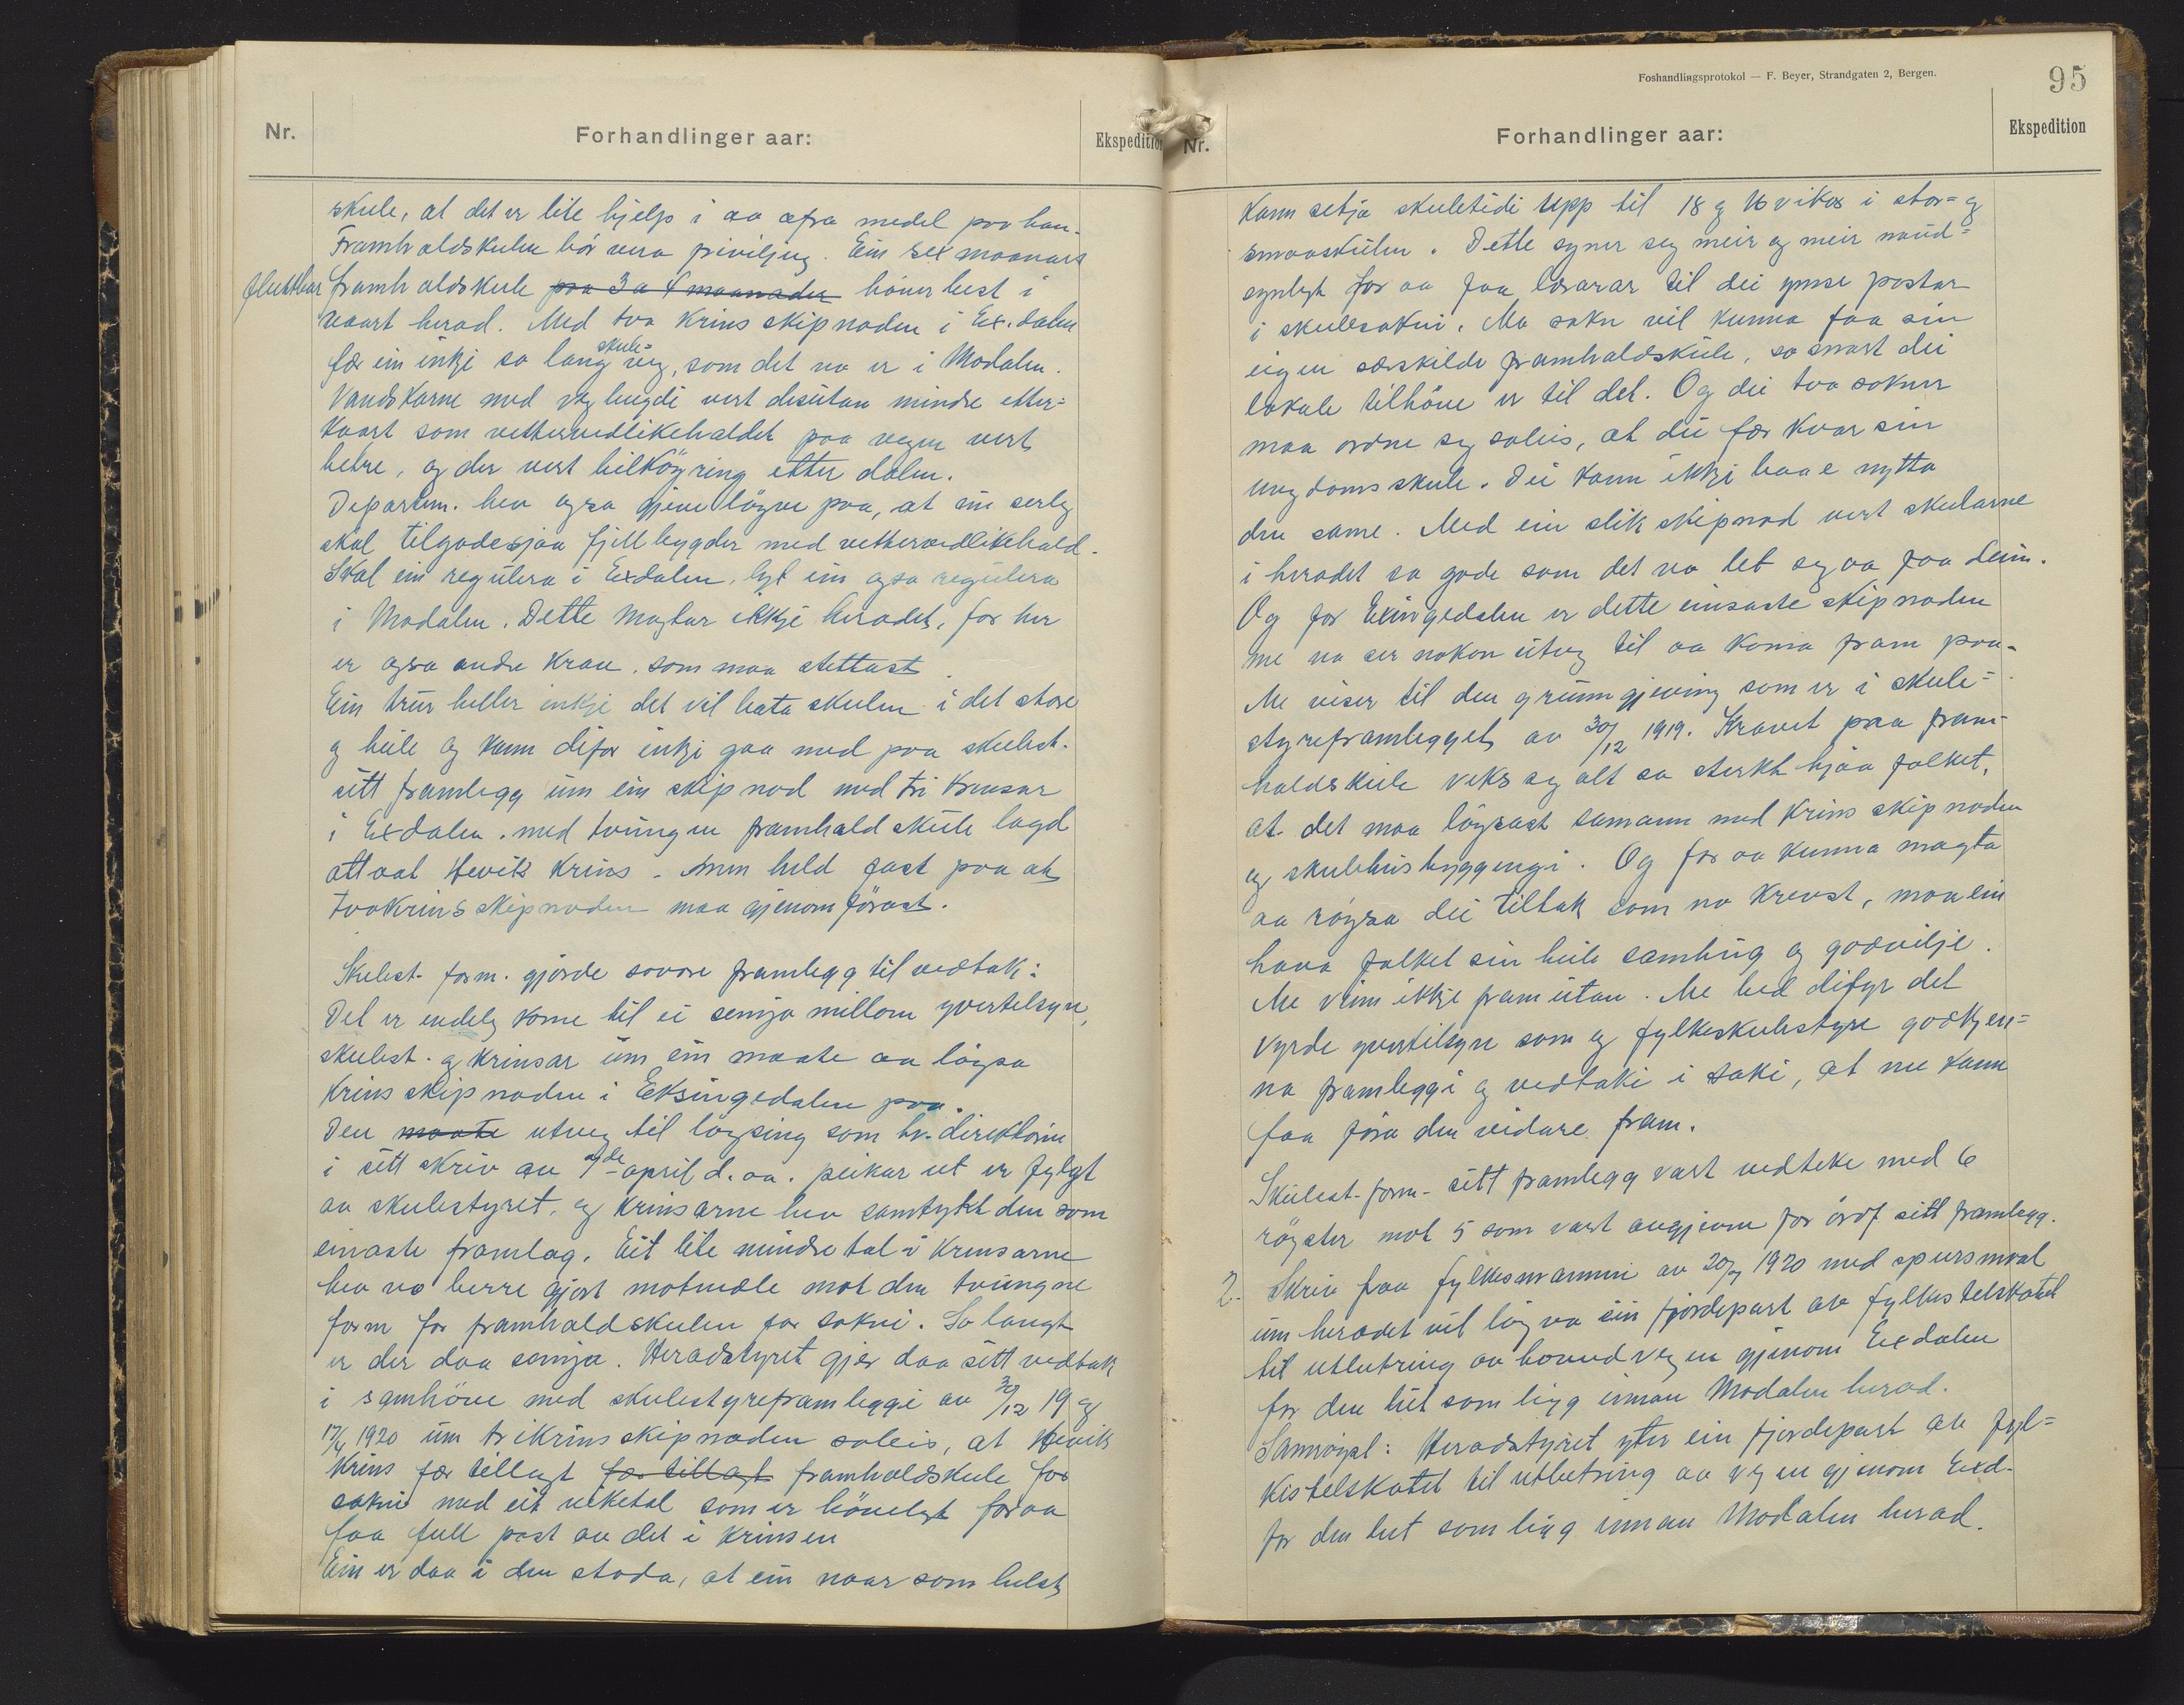 Nr.
Forhandlinger aar:
Ekspedition
skule, at det er lite hjelp i aa ofra medel paa han.
Framhaldskulen bör vera friviljug. Ein sex maanars
fluttbar framhaldskule paa 3 a 4 maanader höver best i
vaart herad. Med tva krinsskipnaden i Ex.dalen
fær ein inkje so lang skule=veg, som det no er i Modalen.
Vandskarne med veglengdi vert desutan mindre etter=
kvart som vettervedlikehaldet paa vegen vert
betre, og der vert bilköyring etter dalen.
Departem. hev ogso gjeve löyve paa, at ein serleg
skal tilgodesjaa fjellbygder med vettervedlikehald.
Skal ein regulera i Exdalen, lyt ein ogso regulera
i Modalen. Dette magtar ikkje heradet, for her
er ogso andre krav som maa stettast.
Ein trur heller inkje det vil bata skulen i det store
og heile og kann difor inkje gaa med paa skulest.
sitt framlegg um ein skipnad med tri krinsar
i Exdalen med tvungen framhaldskule lagd
attaat Hevik krins. Men held fast paa at
tvokrinsskipnaden maa gjenomförast.
Skulest. form. gjorde sovore framlegg til vedtak:
Det er endeleg kome til ei semja millom yvertilsyn,
skulest. og krinsar um ein maate aa löysa
krinsskipnaden i Eksingedalen paa.
Den maate utveg til löysing som hr. direktören
i sitt skriv av 9de april d. aa. peikar ut er fylgt
av skulestyret, og krinsarne hev samtykt den som
einaste framlag. Eit lite mindretal i krinsarne
hev no berre gjort motmæle mot den tvungne
form for framhaldskulen for sokni. So langt
er der daa semja. Heradstyret gjer daa sitt vedtak
i samhöve med skulestyreframleggi av 30/12 19 og
17/4 1920 um trikrinsskipnaden soleis, at Hevik
krins fær tillagt fær tillagt framhaldskule for
sokni med eit viketal som er höveleg for aa
faa full post av det i krinsen
Ein er daa i den stoda, at ein naar som helst
Foshandlingsprotokol — F. Beyer, Strandgaten 2, Bergen.
95
Nr.
Forhandlinger aar:
Ekspedition
kann setja skuletidi upp til 18 og 16 vikor i stor= og
smaaskulen. Dette syner seg meir og meir naud=
synlegt for aa faa lærarar til dei ymse postar
i skulesokni. Mo sokn vil kunna faa sin
eigen særskilde framhaldskule, so snart dei
lokale tilhöve er til det. Og dei tvo sokner
maa ordne seg soleis, at dei fær kvar sin
ungdomsskule. Dei kann ikkje baae nytta
den same. Med ein slik skipnad vert skularne
i heradet so gode som det no let seg aa faa deim.
Og for Exingedalen er dette einaste skipnaden
me no ser nokon utveg til aa koma fram paa.
Me viser til den grunngjeving som er i skule=
styreframlegget av 30/12 1919. Kravet paa fram-
haldskule veks seg alt so sterkt hjaa folket,
at det maa löysast samann med krinsskipnaden
og skulehusbyggingi. Og for aa kunna magta
aa röysa dei tiltak som no krevst, maa ein
hava folket sin heile samhug og godvilje.
Me vinn ikkje fram utan. Me bed difyr det
vyrde yvertilsyn som og fylkesskulestyre godkjen=
na framleggi og vedtaki i saki, at me kann
faa föra den vidare fram.
Skulest. form. sitt framlegg vart vedteke med 6
röyster mot 5 som vart avgjevne for ordf sitt framlegg.
2. Skriv fraa fylkesmannen av 20/7 1920 med spursmaal
um heradet vil löyva ein fjordepart av fylkestelskotet
til utbetring av hovudvegen gjenom Exdalen
for den lut som ligg innan Modalen herad.
Samröystt: Heradstyret yter ein fjordepart av fyl=
kistelskotet til utbetring av vegen gjenom Exd.
for den lut som ligg innan Modalen herad.